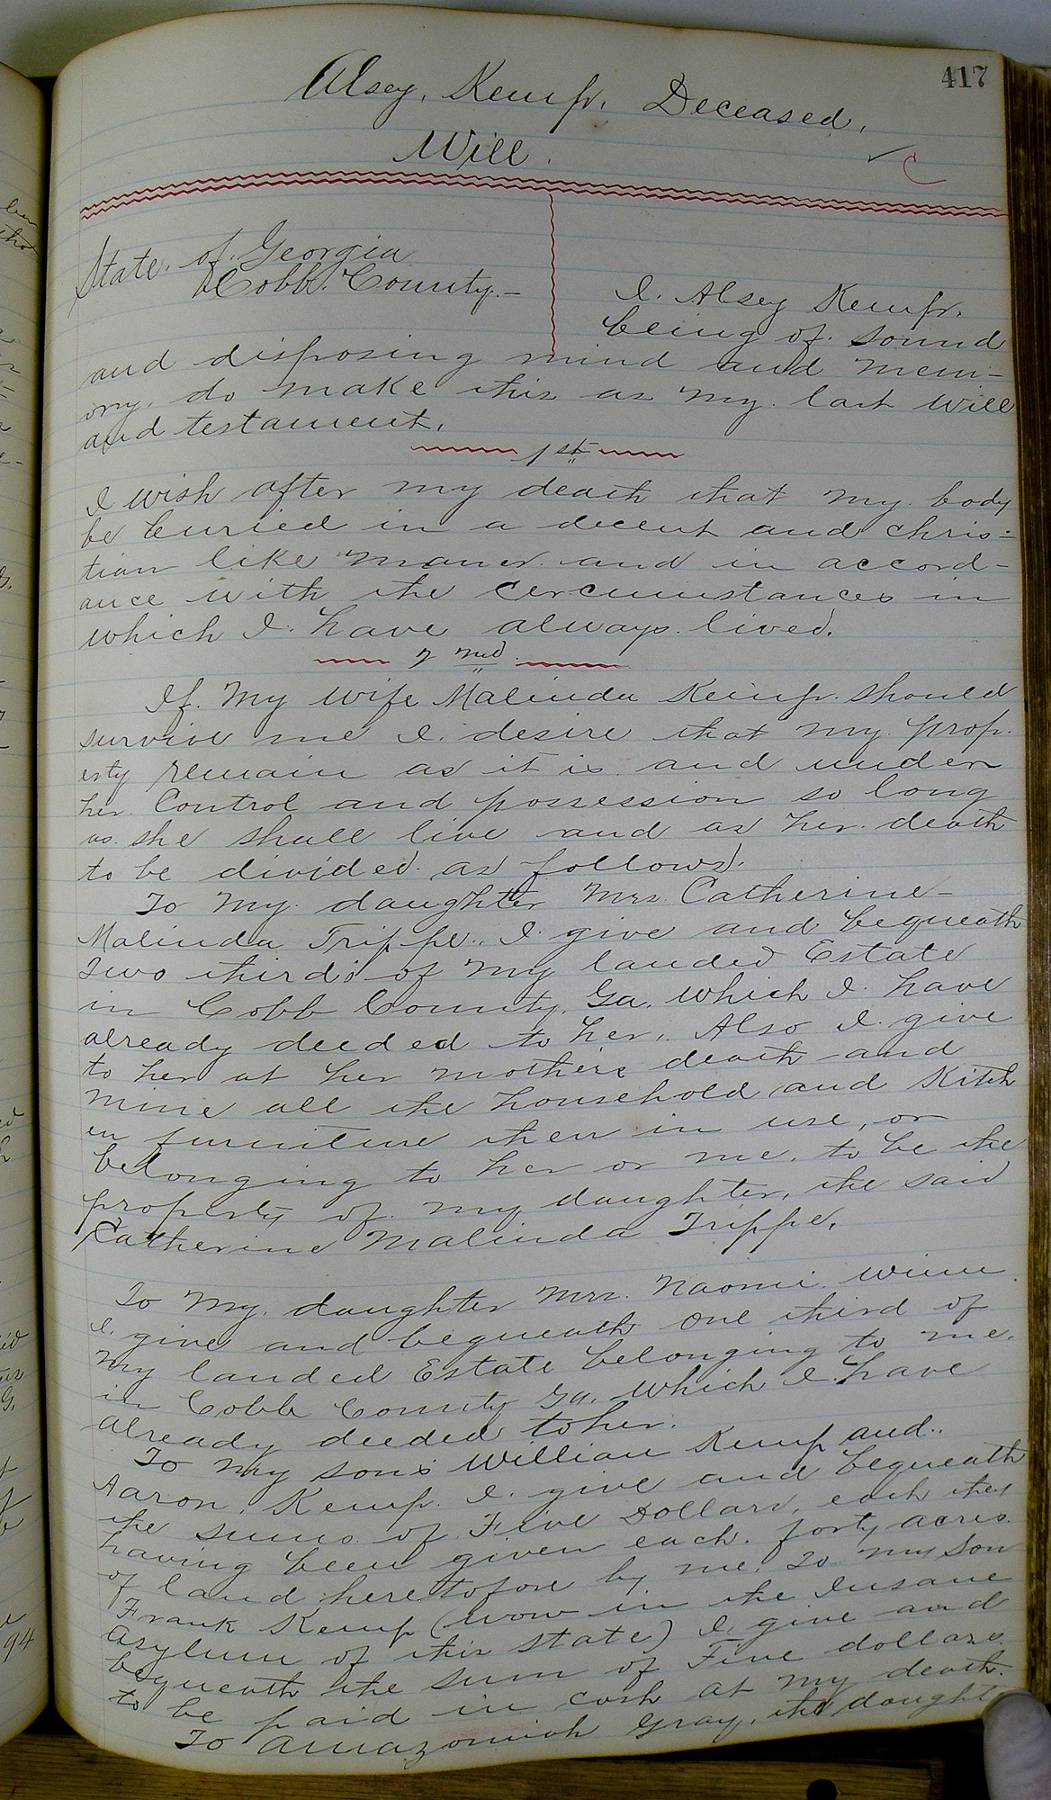 417
Alsey. Kemp. Deceased.
Will.
State. of. Georgia
Cobb. County.—
I. Alsey Kemp.
being of. sound
and disposing mind and mem-
ory. do make this as my. last Will
and testament.
1st
I wish after my death that my. body
be buried in a decent and chris=
tian like maner. and in accord-
ance with the cercumstances in
which I. have always. lived.
2nd
If. my wife Malinda Kemp. should
survive me I. desire that my. prop.
erty remain as it is. and under
her. Control and possession so long
as. she shall live and as her. death
to be divided. as follows.
To my. daughter Mrs. Catherine-
Malinda Trippe.. I. give and bequeath
Two third's of my landed Estate
in Cobb County. Ga. which I. have
already deeded to her. Also I. give
to her at her mothers death and
mine all the household and Kitch
en furniture then in use, or
belonging to her or me. to be the
property of. my daughter, the said
Catherine Malinda Trippe.
To my. daughter Mrs. Naomi. Winn.
I. give and bequeath One third of
my landed Estate belonging to me.
in Cobb County Ga. which I have
already deeded to her.
To my son's William Kemp and..
Aaron. Kemp. I. give and bequeath
the sums of. Five Dollars, each they
having been given each. forty acres.
of land heretofore by me. To my Son
Frank Kemp (now in the Insane
Asylum of this State) I. give and
bequeath the sum of Five dollars.
to be paid in cash at my death.
To Amazoniah Gray, the daught